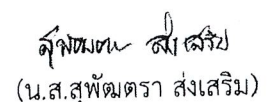 สุพัฒตรา ส่งเสริม
(น.ส.สุพัฒตรา ส่งเสริม)